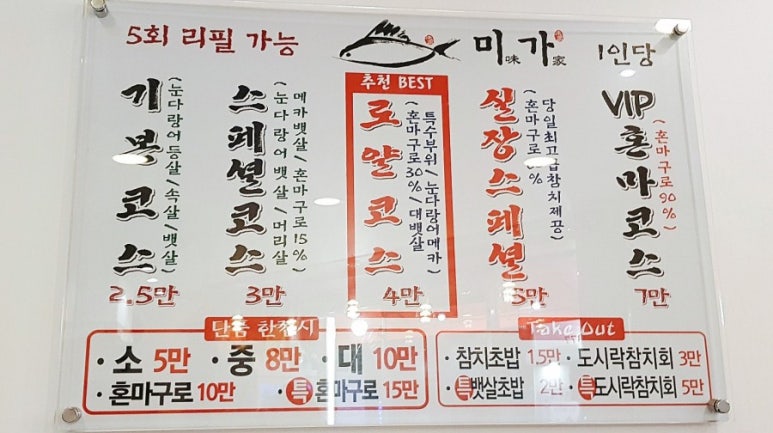 5회 리필 가능
미味가家
1인당
기본코스
(눈다랑어등살/속살/뱃살)
2.5만
스페셜코스
(눈다랑어뱃살/머리살
메카뱃살/혼마구로15%)
3만
추천 BEST
로얄코스
(혼마구로30%/대뱃살
특수부위/눈다랑어메카)
4만
실장스페셜
(혼마구로
당일최고급참치제공)
5만
VIP혼마코스
(혼마구로90%)
7만
단품 한접시
· 소 5만 · 중 8만 · 대 10만
· 혼마구로 10만 · 특 혼마구로 15만
Take Out
· 참치초밥 1.5만 · 도시락참치회 3만
· 특뱃살초밥 2만 · 특도시락참치회 5만